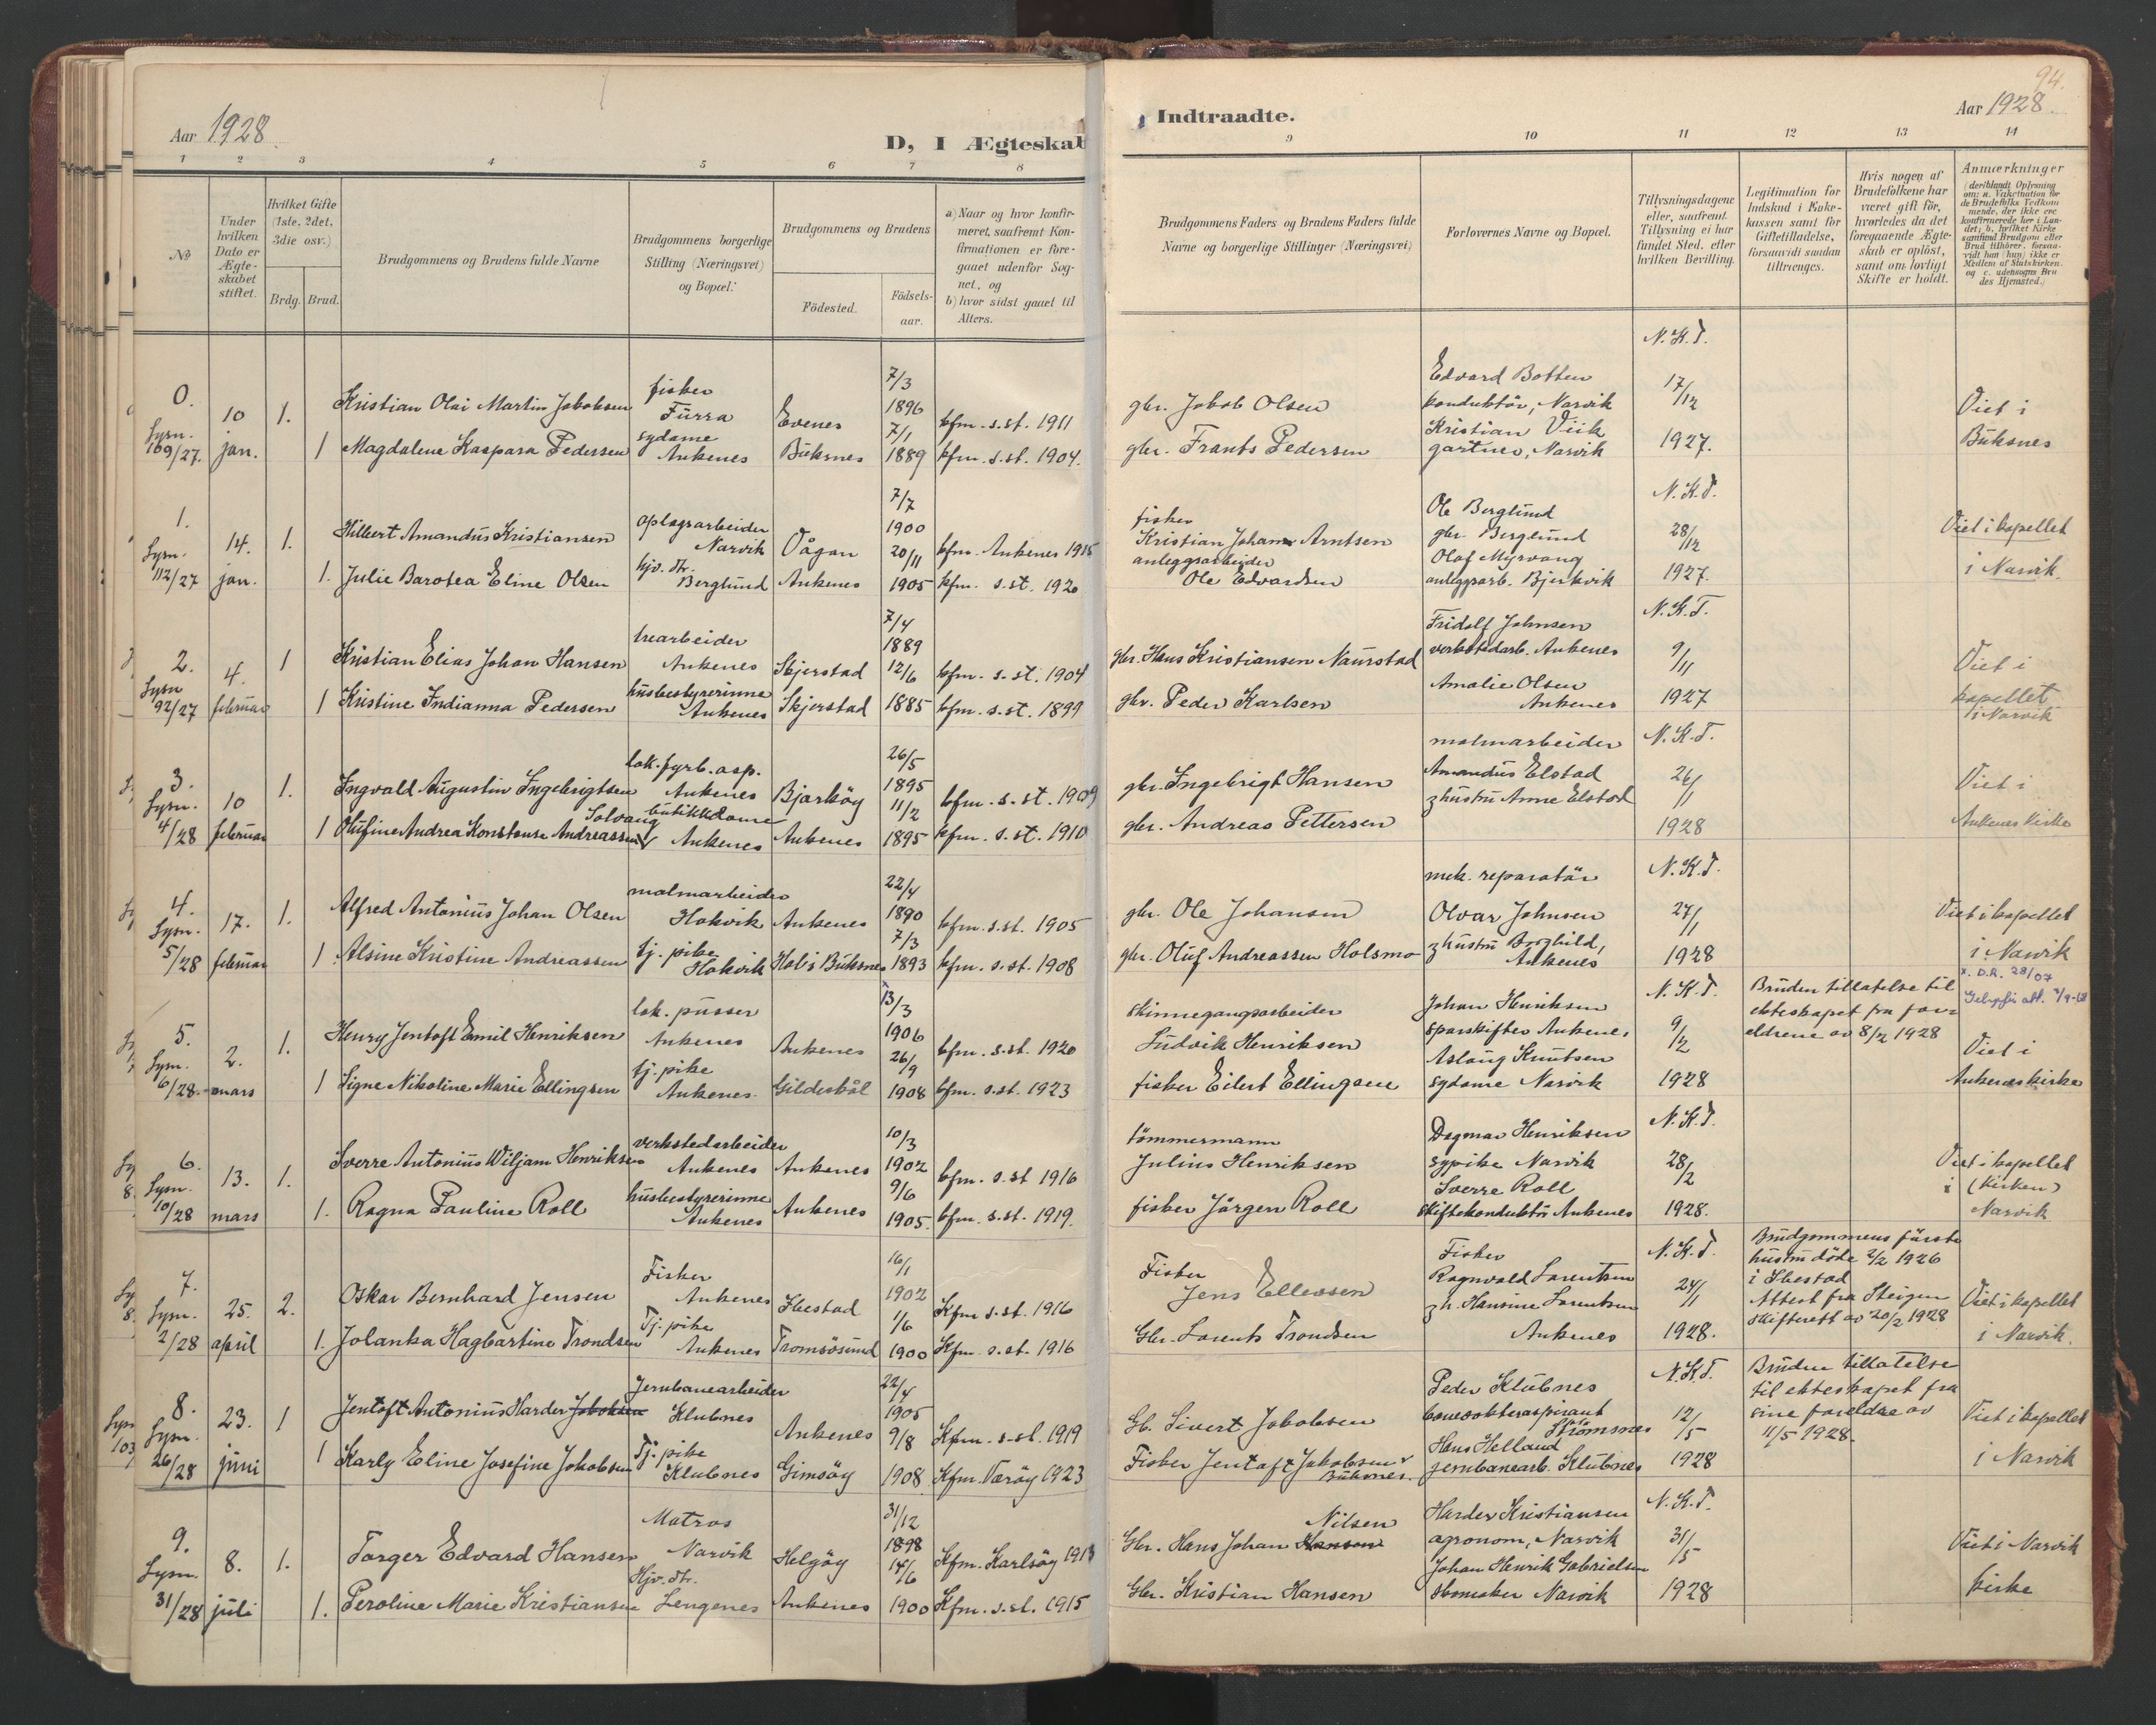 94.
Aar 1928
D, I Ægteskab
Indtraadte.
Aar 1928
1 2 3 4 5 6 7 8
9 10 11 12 13 14
№
Under hvilken Dato er Ægteskabet stiftet.
Hvilket Gifte (1ste, 2det, 3die osv.)
Brdg. Brud.
Brudgommens og Brudens fulde Navne
Brudgommens borgerlige Stilling (Næringsvei) og Bopæl.
Brudgommens og Brudens
Födested.
Födselsaar.
a) Naar og hvor konfirmeret, saafremt Konfirmationen er foregaaet udenfor Sognet, og
b) hvor sidst gaaet til Alters.
Brudgommens Faders og Brudens Faders fulde Navne og borgerlige Stillinger (Næringsvei)
Forlovernes Navne og Bopæl.
Tillysningsdagene eller, saafremt Tillysning ei har fundet Sted, efter hvilken Bevilling.
Legitimation for Indskud i Enkekassen samt for Giftetilladelse, forsaavidt saadan tiltrænges.
Hvis nogen af Brudefolkene har været gift för, hvorledes da det foregaaende Ægteskab er oplöst, samt om lovligt Skifte er holdt.
Anmærkninger
(deriblandt Oplysning om: a. Vakcination for de Brudefolks Vedkommende, der ikke ere konfirmerede her i Landet; b. hvilket Kirkesamfund Brudgom eller Brud tilhörer, forsaavidt han (hun) ikke er Medlem af Statskirken, og c. udensogns Brudes Hjemsted.)
0. Lysn. 109/27. 10 jan. 1. Kristian Olai Martin Jakobsen fisker Furra Evenes 7/3 1896 kfm. s. st. 1911 gbr. Jakob Olsen Edvard Botten konduktör, Narvik N.K.T. 17/12 Viet i
1 Magdalene Kaspara Pedersen sydame Ankenes Buksnes 7/1 1889 kfm. s. st. 1904. gbr. Frants Pedersen Kristian Viik gartner, Narvik 1927. Buksnes
1. Lysn. 112/27 14. jan. 1. Hilbert Amandus Kristiansen oplagsarbeider Narvik Vågan 7/7 1900 kfm. Ankenes 1915 fisker Kristian Johan Arntsen Ole Berglund gbr. Berglund N.K.T. 28/12 Viet i kapellet
1. Julie Barotea Eline Olsen hjv. dtr. Berglund Ankenes 20/11 1905 kfm. s. st. 1920 anleggsarbeider Ole Edvardsen Olaf Myrvang anleggsarb. Bjerkvik 1927. i Narvik.
2. Lysn 92/27 4. februar 1 Kristian Elias Johan Hansen trearbeider Ankenes Skjerstad 7/4 1889 kfm. s. st. 1904 gbr. Hans Kristiansen Naurstad Fridolf Johnsen verkstedarb. Ankenes N.K.T. 9/11 Viet i
1 Kristine Indianna Pedersen husbestyrerinne Ankenes Skjerstad 12/6 1885 kfm. s. st. 1899 gbr. Peder Karlsen Amalie Olsen Ankenes 1927 kapellet i Narvik
3. Lysn. 4/28 10 februar 1. Ingvald Augustin Ingebrigtsen lok. fyrb. asp. Ankenes Bjarköy 26/5 1895 kfm. s. st. 1909 gbr. Ingebrigt Hansen malmarbeider Amandus Elstad N.K.T. 26/1 Viet i
1 Olufine Andrea Konstanse Andreassen Solvang butikkdame Ankenes Ankenes 11/2 1895 kfm. s. st. 1910 gbr. Andreas Pettersen & hustru Anne Elstad 1928 Ankenes kirke
4. Lysn. 5/28 17. februar 1. Alfred Antonius Johan Olsen malmarbeider Håkvik Ankenes 22/4 1890 kfm. s. st. 1905 gbr. Ole Johansen mek. reparatör Olvar Johnsen N.K.T. 27/1 Viet i kapellet
1. Alsine Kristine Andreassen tj. pike Håkvik Hol i Buksnes 7/3 1893 kfm. s. st. 1908 gbr. Oluf Andreassen Holsmo & hustru Borghild, Ankenes 1928 i Narvik
5. Lysn. 6/28. 2. mars 1. Henry Jentoft Emil Henriksen lok. pusser Ankenes Ankenes 13/3 1906 kfm. s. st. 1920 skinnegangsarbeider Ludvik Henriksen Johan Henriksen sporskifter Ankenes N.K.T. 9/2 Bruden tillatelse til ekteskapet fra foreldrene av 8/2 1928 D.R. 28/07 Viet i
1 Signe Nikoline Marie Ellingsen tj. pike Ankenes. Gildeskål 26/9 1908 kfm. s. st. 1923 fisker Eilert Ellingsen Aslaug Knutsen sydame Narvik 1928 Ankenes kirke
6. Lysn. 10/28 13. mars 1. Sverre Antonius Wiljam Henriksen verkstedarbeider Ankenes Ankenes 10/3 1902 kfm. s. st 1916 tömmermann Julius Henriksen Dagmar Henriksen sypike Narvik N.K.T. 28/2 Viet i kapellet
1. Ragna Pauline Roll husbestyrerinne Ankenes Ankenes 9/6 1905. kfm. s. st. 1919. fisker Jörgen Roll Sverre Roll skiftekonduktör Ankenes 1928. i (kirken) Narvik
7. Lysn. 2/28 25. april 2. Oskar Bernhard Jensen Fisker Ankenes Ibestad 16/1 1902 Kfm s. st. 1916 Fisker Jens Ellevsen Fisker Ragnvald Lorentsen N.K.T. 24/1 Brudgommens förste hustru döde 2/2 1926 i Ibestad Attest fra Steigen skifterett av 20/2 1928 Viet i kapellet
1. Jolanka Hagbartine Trondsen Tj. pike Ankenes Tromsösund 1/6 1900 Kfm. s. st. 1916 Gbr. Lorents Trondsen & h. Hansine Lorentsen Ankenes 1928. i Narvik.
8. Lysn. 26/28 23. juni 1 Jentoft Antonius Harder Jakobsen Jernbanearbeider Klubnes Ankenes 22/4 1905 Kfm. s. st. 1919 Gb. Sivert Jakobsen Peder Klubnes banevokteraspirant Strömsnes N.K.T. 12/5 Bruden tillatelse til ekteskapet fra sine foreldre av 11/5 1928. Viet i kapellet
1 Karly Eline Josefine Jakobsen Tj. pike Klubnes Gimsöy 9/8 1908 Kfm.Væröy 1923 Fisker Jentoft Jakobsen Buksnes. Hans Helland jernbanearb. Klubnes 1928 i Narvik
9. Lysn. 31/28 8. juli 1. Torger Edvard Hansen Matros Narvik Helgöy 31/12 1898 Kfm. Karlsöy 1913 Gbr. Hans Johan Hansen Nilsen Harder Kristiansen agronom, Narvik N.K.T. 31/5 Viet i Narvik
1. Peroline Marie Kristiansen Hjv. dtr. Lengenes Ankenes 14/6 1900 Kfm. s. st. 1915 Gbr. Kristian Hansen Johan Henrik Gabrielsen skomaker Narvik 1928 kirke